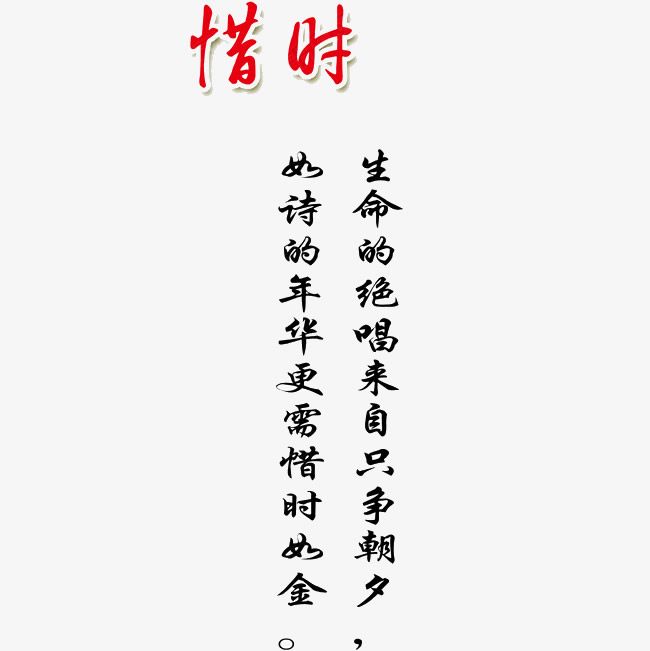 惜时
生命的绝唱来自只争朝夕，
如诗的年华更需惜时如金。